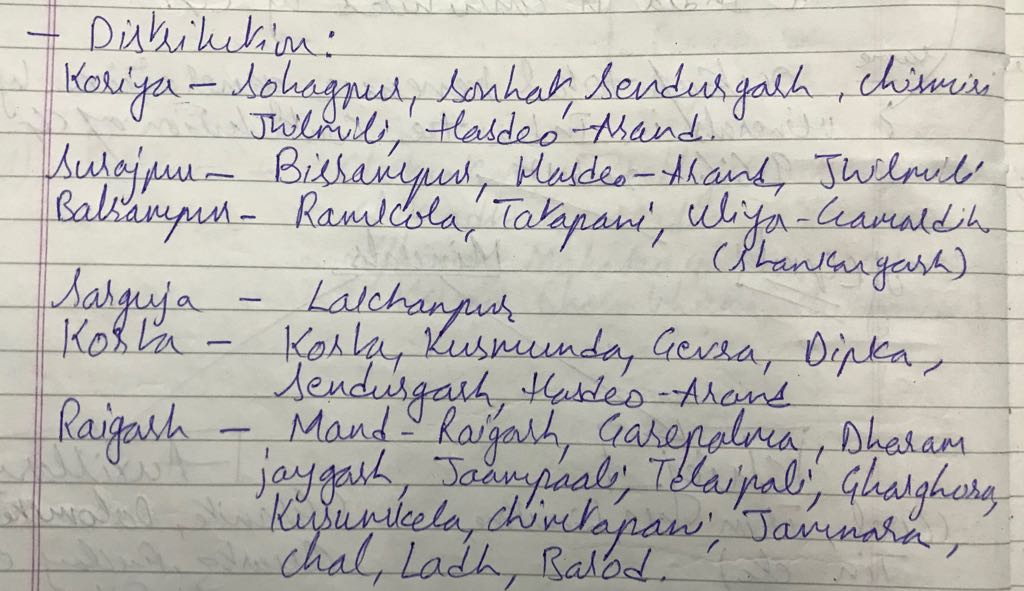 - Distribution:
Koriya - Sohagpur, Sonhat, Sendurgarh, Chirmiri
Jhilmili, Hasdeo-Arand.
Surajpur - Bisrampur, Hasdeo-Arand, Jhilmili
Balrampur - Ramkola, Tatapani, Uliya-Gamaldih
(Shankargarh)
Sarguja - Lakhanpur
Korba - Korba, Kusmunda, Gevra, Dipka,
Sendurgarh, Hasdeo-Arand
Raigarh - Mand-Raigarh, Garepalma, Dharam
jaygarh, Jaampaali, Telaipali, Gharghora,
Kurumkela, Chimtapani, Jamnara,
Chal, Ladh, Barod.